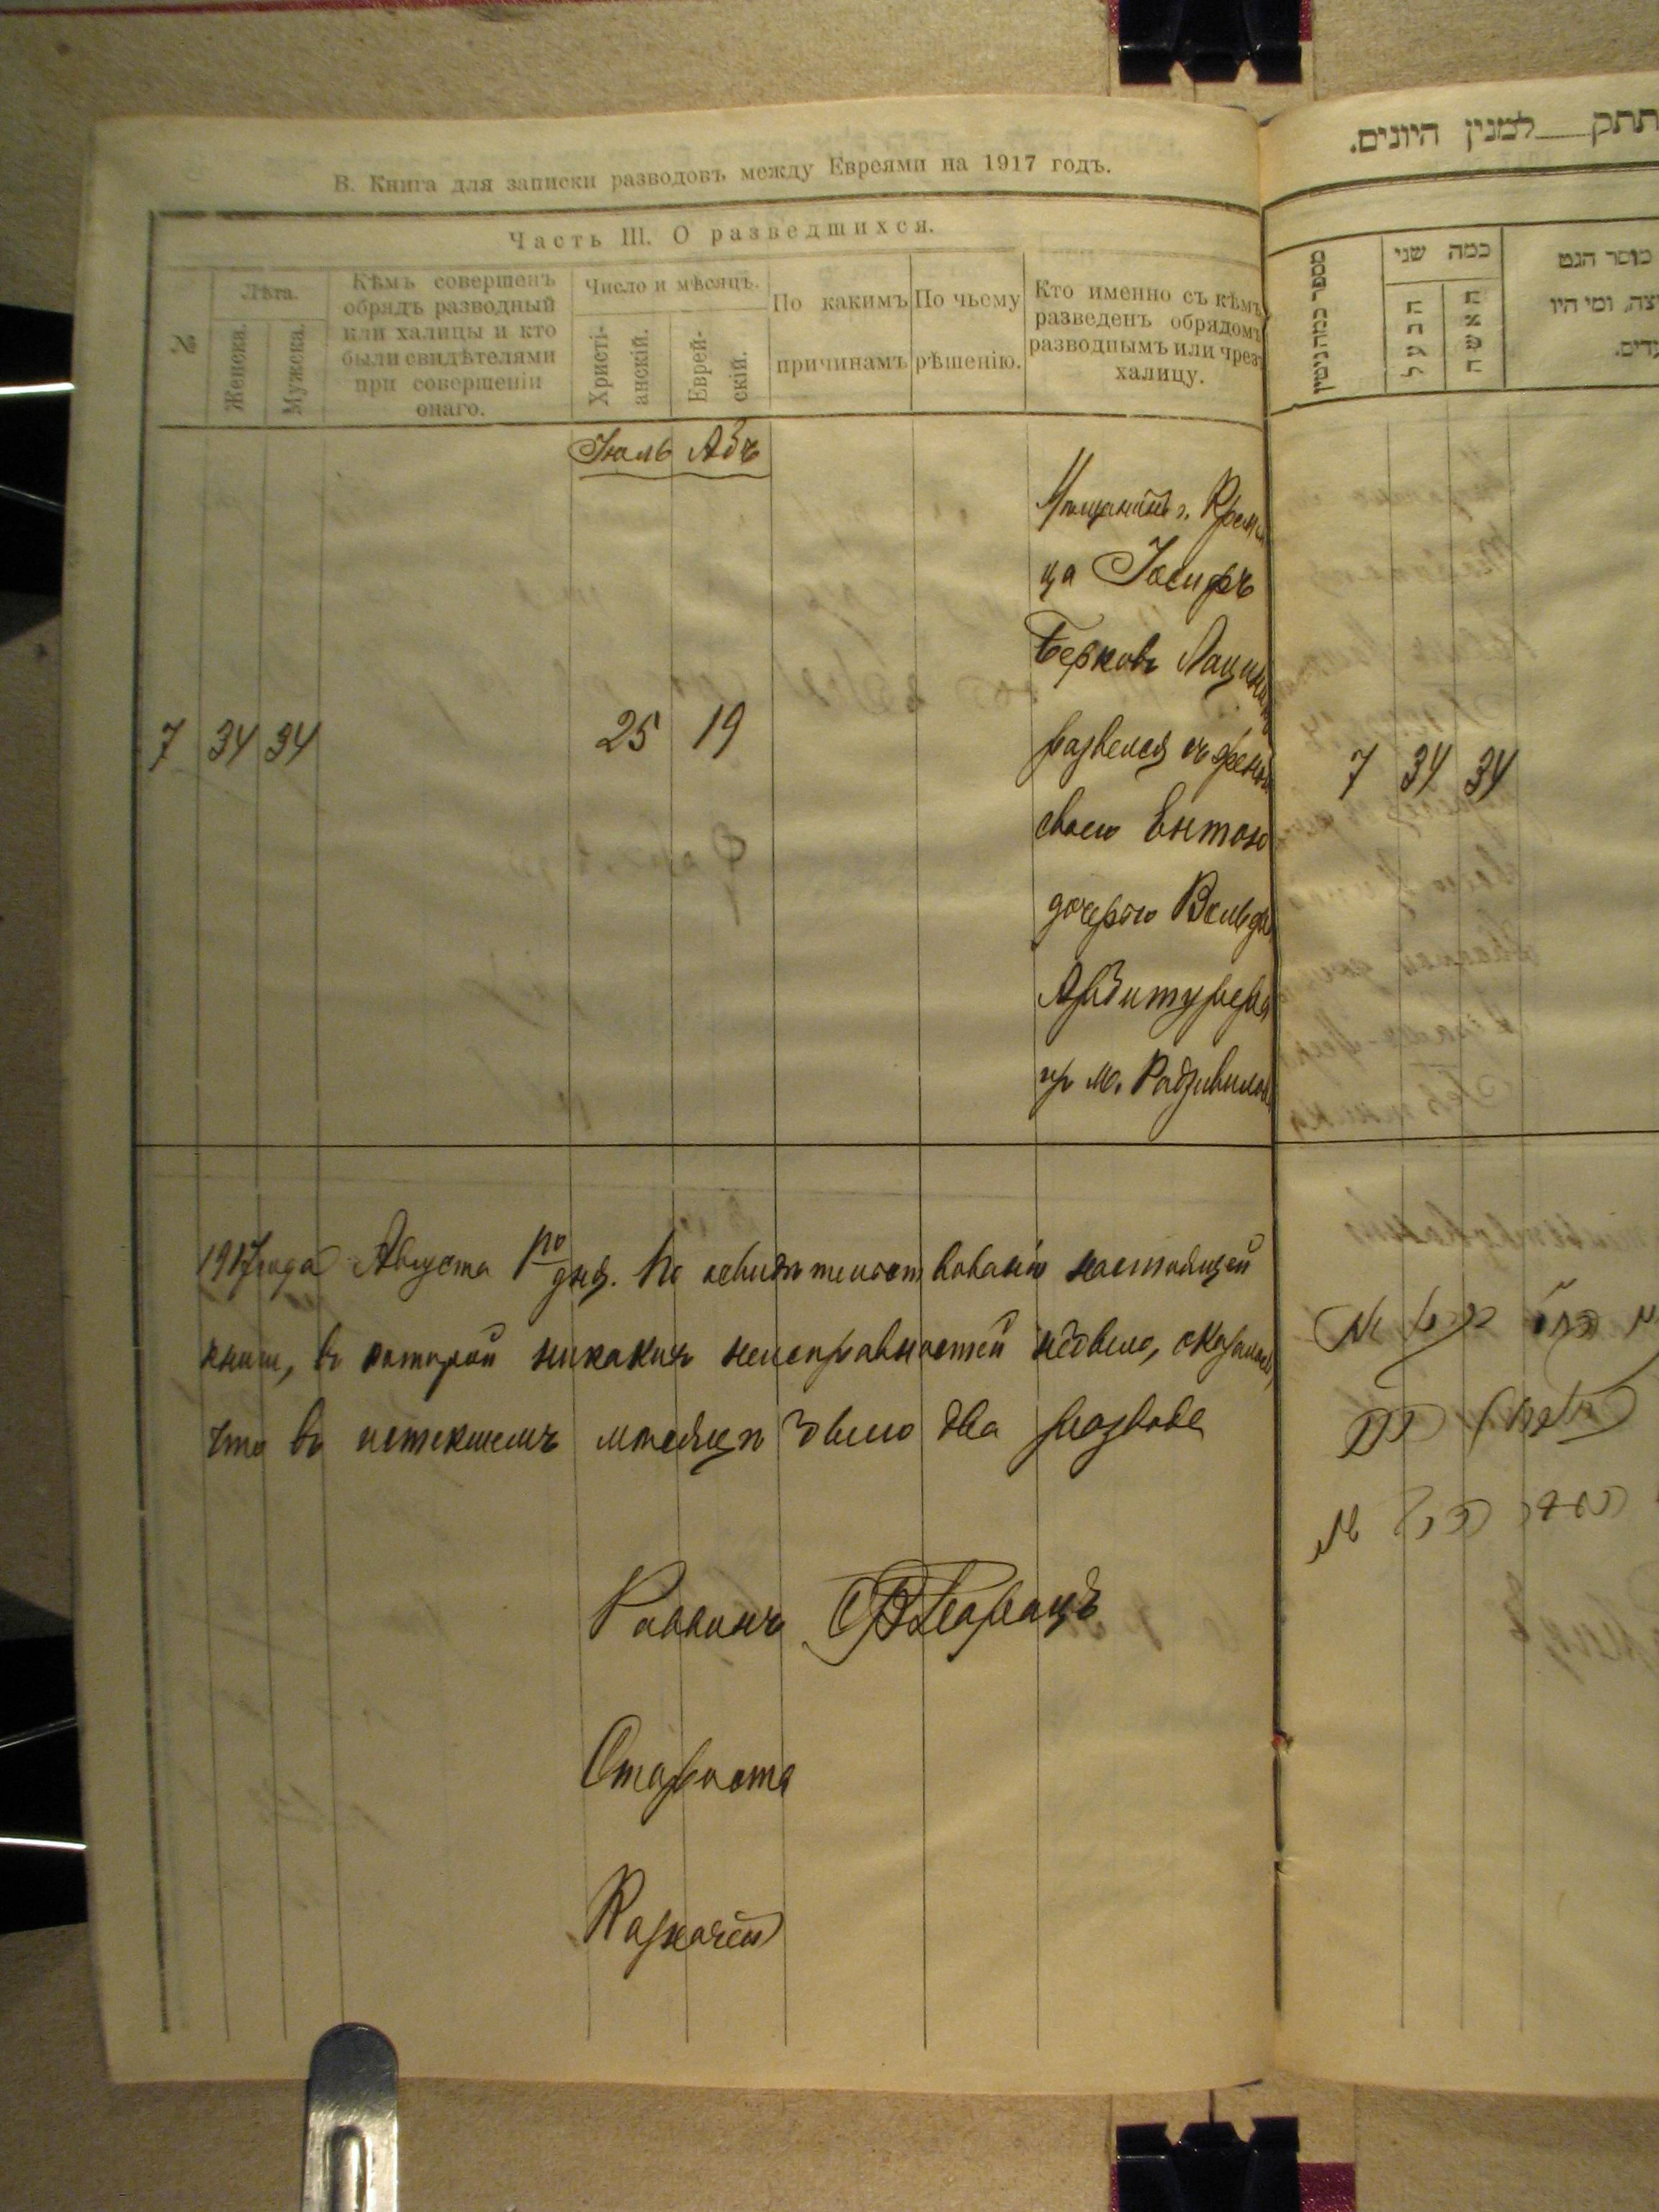 В. Книга для записки разводовъ между Евреями на 1917 годъ.
Часть III. О разведшихся.
№
Лѣта.
Женска.
Мужска.
Кѣмъ совершенъ
обрядъ разводный
или халицы и кто
были свидѣтелями
при совершеніи
онаго.
Число и мѣсяцъ.
Христі-
анскій.
Еврей-
скій.
По какимъ
причинамъ
По чьему
рѣшенію.
Кто именно съ кѣмъ
разведенъ обрядомъ
разводнымъ или чрезъ
халицу.
Іюль Абъ
Мѣщанинъ г. Кремен
ца Іосифъ
Берковъ
7 34 34 25 19 развелся съ женою
своею Ентою
дочерью Вольфа
Арбитурера
м. Радзивилов
1917 года Августа 1го дня. По освидѣтельствованію настоящей
книги, въ которой никакихъ неисправностей небыло, оказалось,
что въ истекшемъ мѣсяцѣ было два развода
Раввинъ
Староста
Казначей
תתק למנין היונים.
מספר כמה גיטין
כמה שני
הבעל
האשה
מוסר הגט
ומי היו
7 34 34